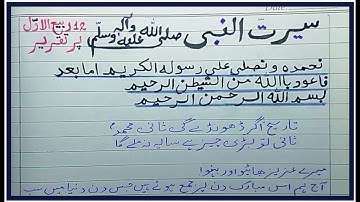 12 ربیع الاوّل
پر تقریر
سیرت النبی صلی اللہ علیہ وآلہ وسلّم
نحمدہ و نصلی علی رسولہ الکریم اما بعد
فاعوذ باللہ من الشیطن الرحیم
بسم اللہ الرحمن الرحیم
تاریخ اگر ڈھونڈے گی ثانی محمدؐ
ثانی تو بڑی چیز ہے سایہ نہ ملے گا
میرے عزیز بھائیو اور بہنو!
آج ہم اس مبارک دن پر جمع ہوئے ہیں جس دن دنیا میں سب